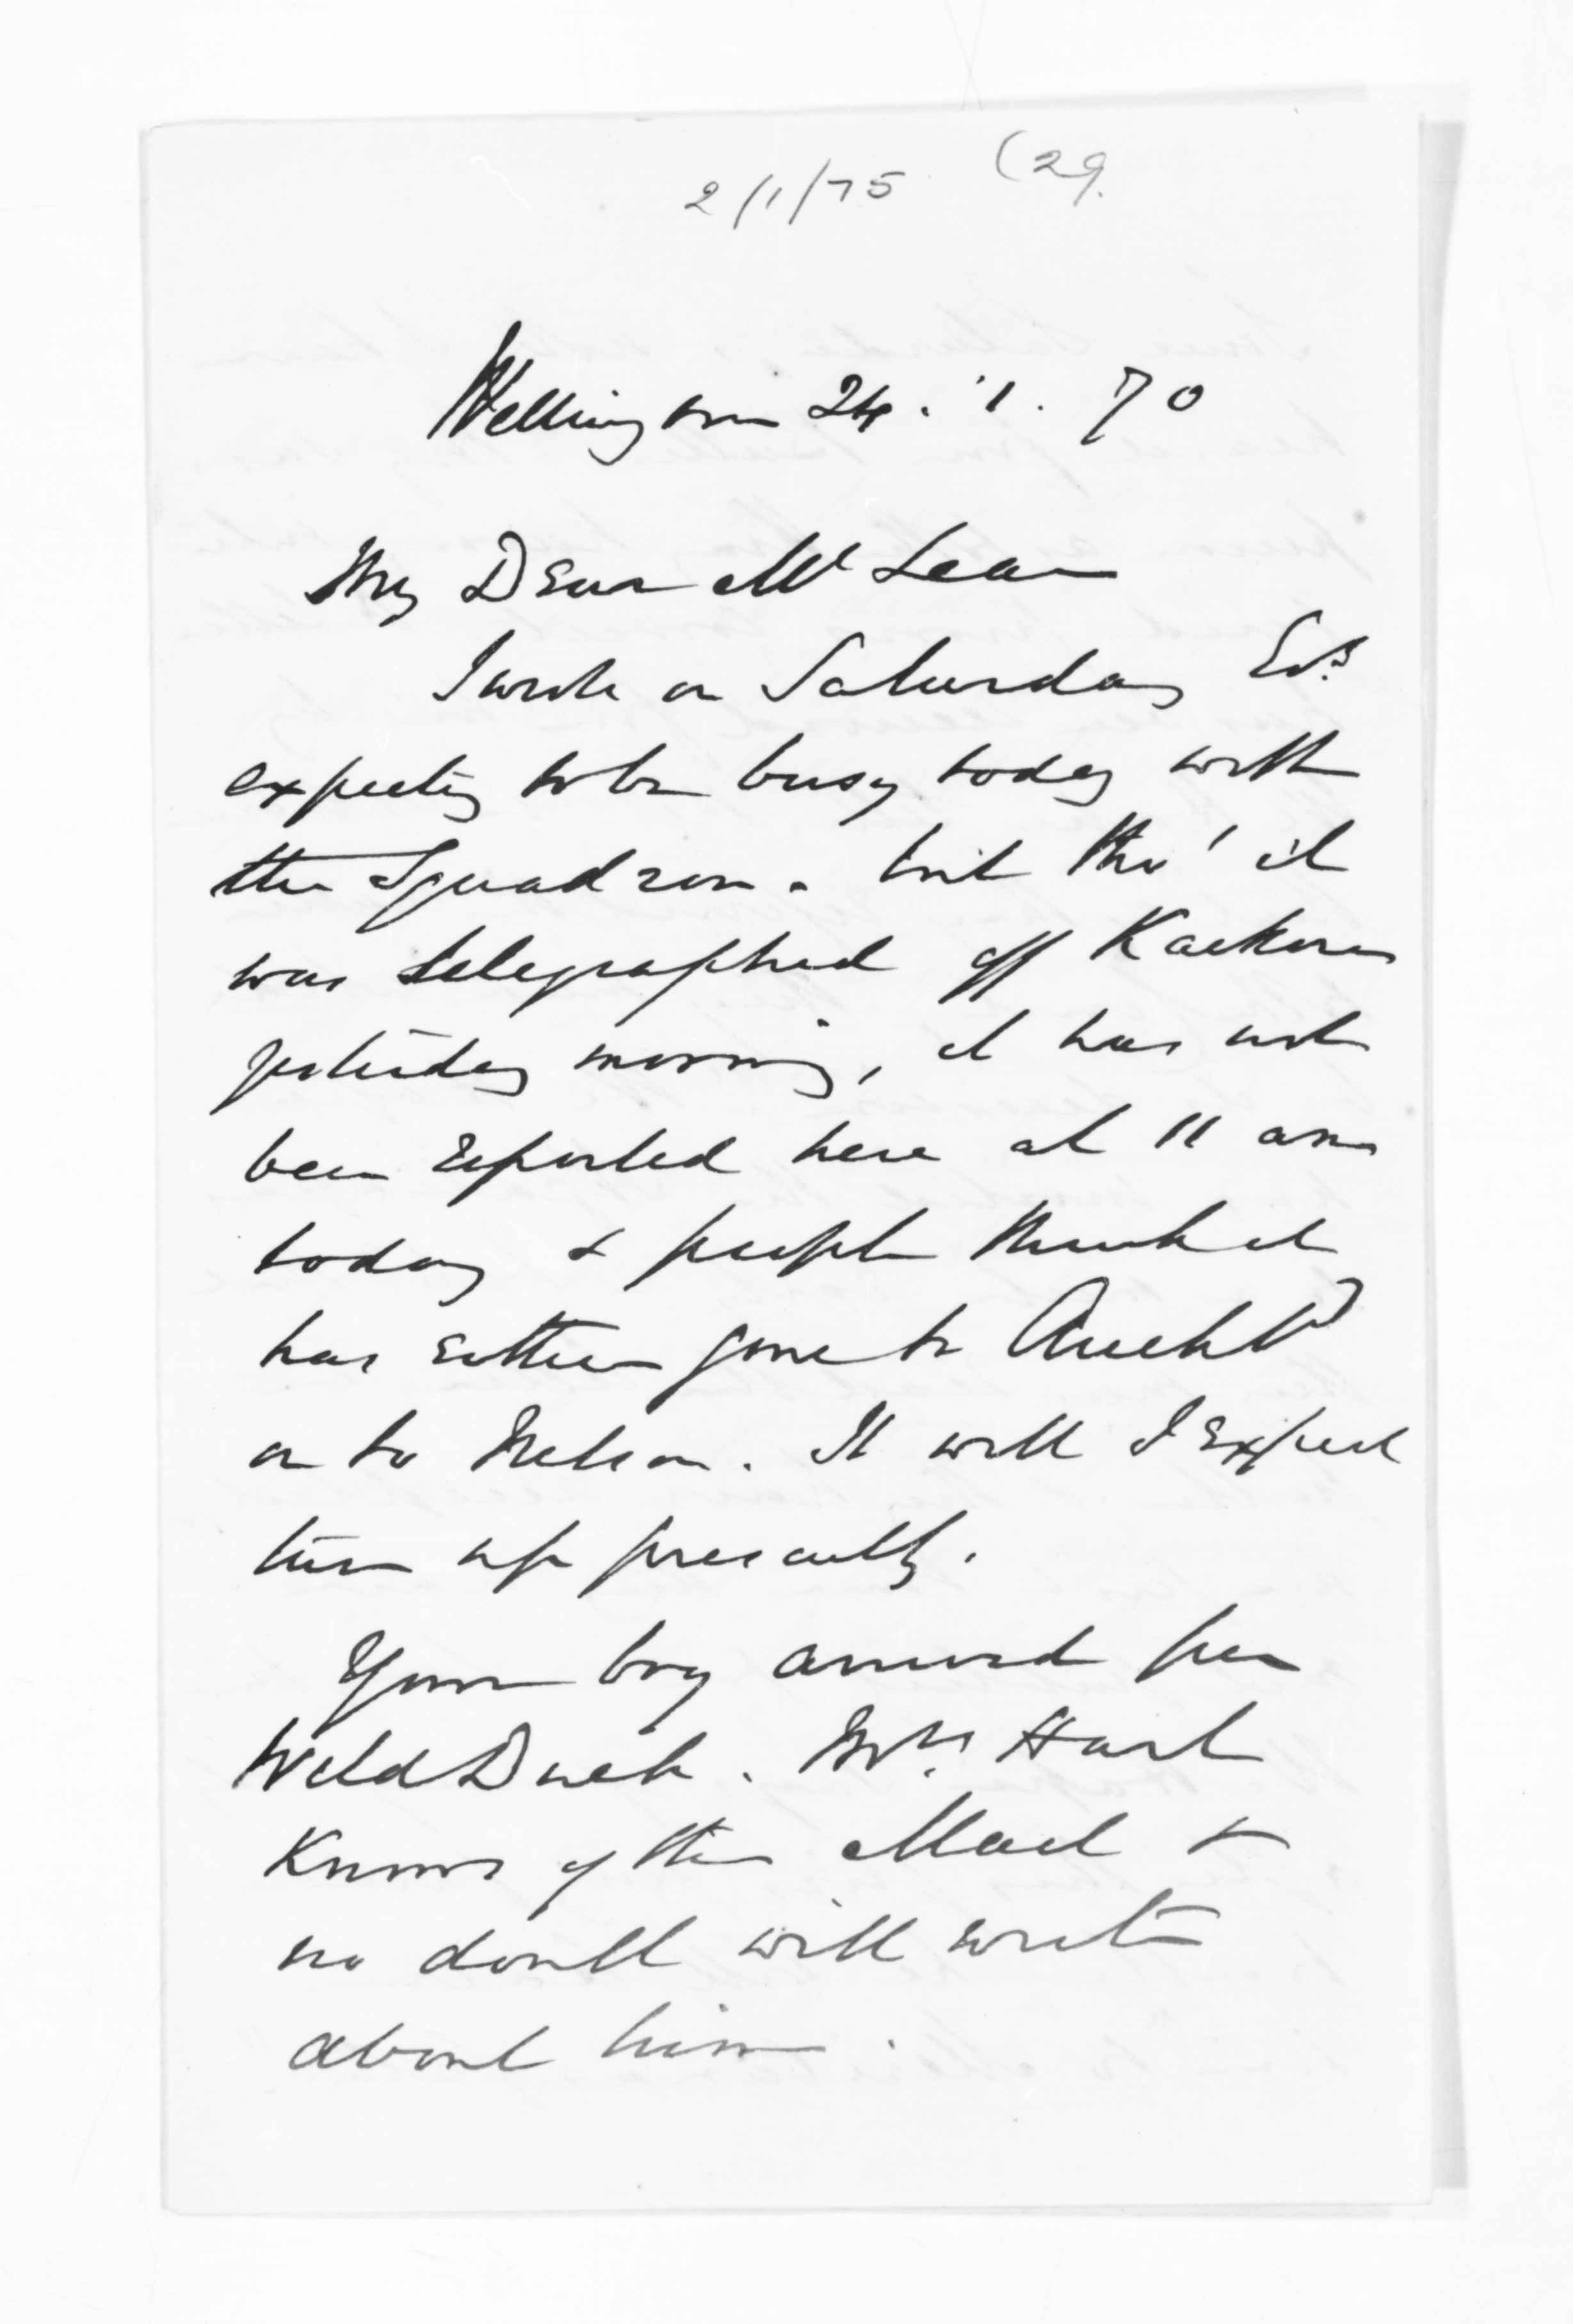 2/1/75 (29.
Wellington 24. 1. 70
My Dear McLean
I wrote on Saturday Evg
expecting to be busy today with
the Squadron. but tho' it
was telegraphed off Kaikora
yesterday morning, it has not
been reported here at 11 am
today & people think it
has either gone to Auckld
or to Nelson. It will I expect
turn up presently.
Your boy arrived per
Wild Duck. Mrs Hart
Knows of the Mail &
no doubt will write
about him.